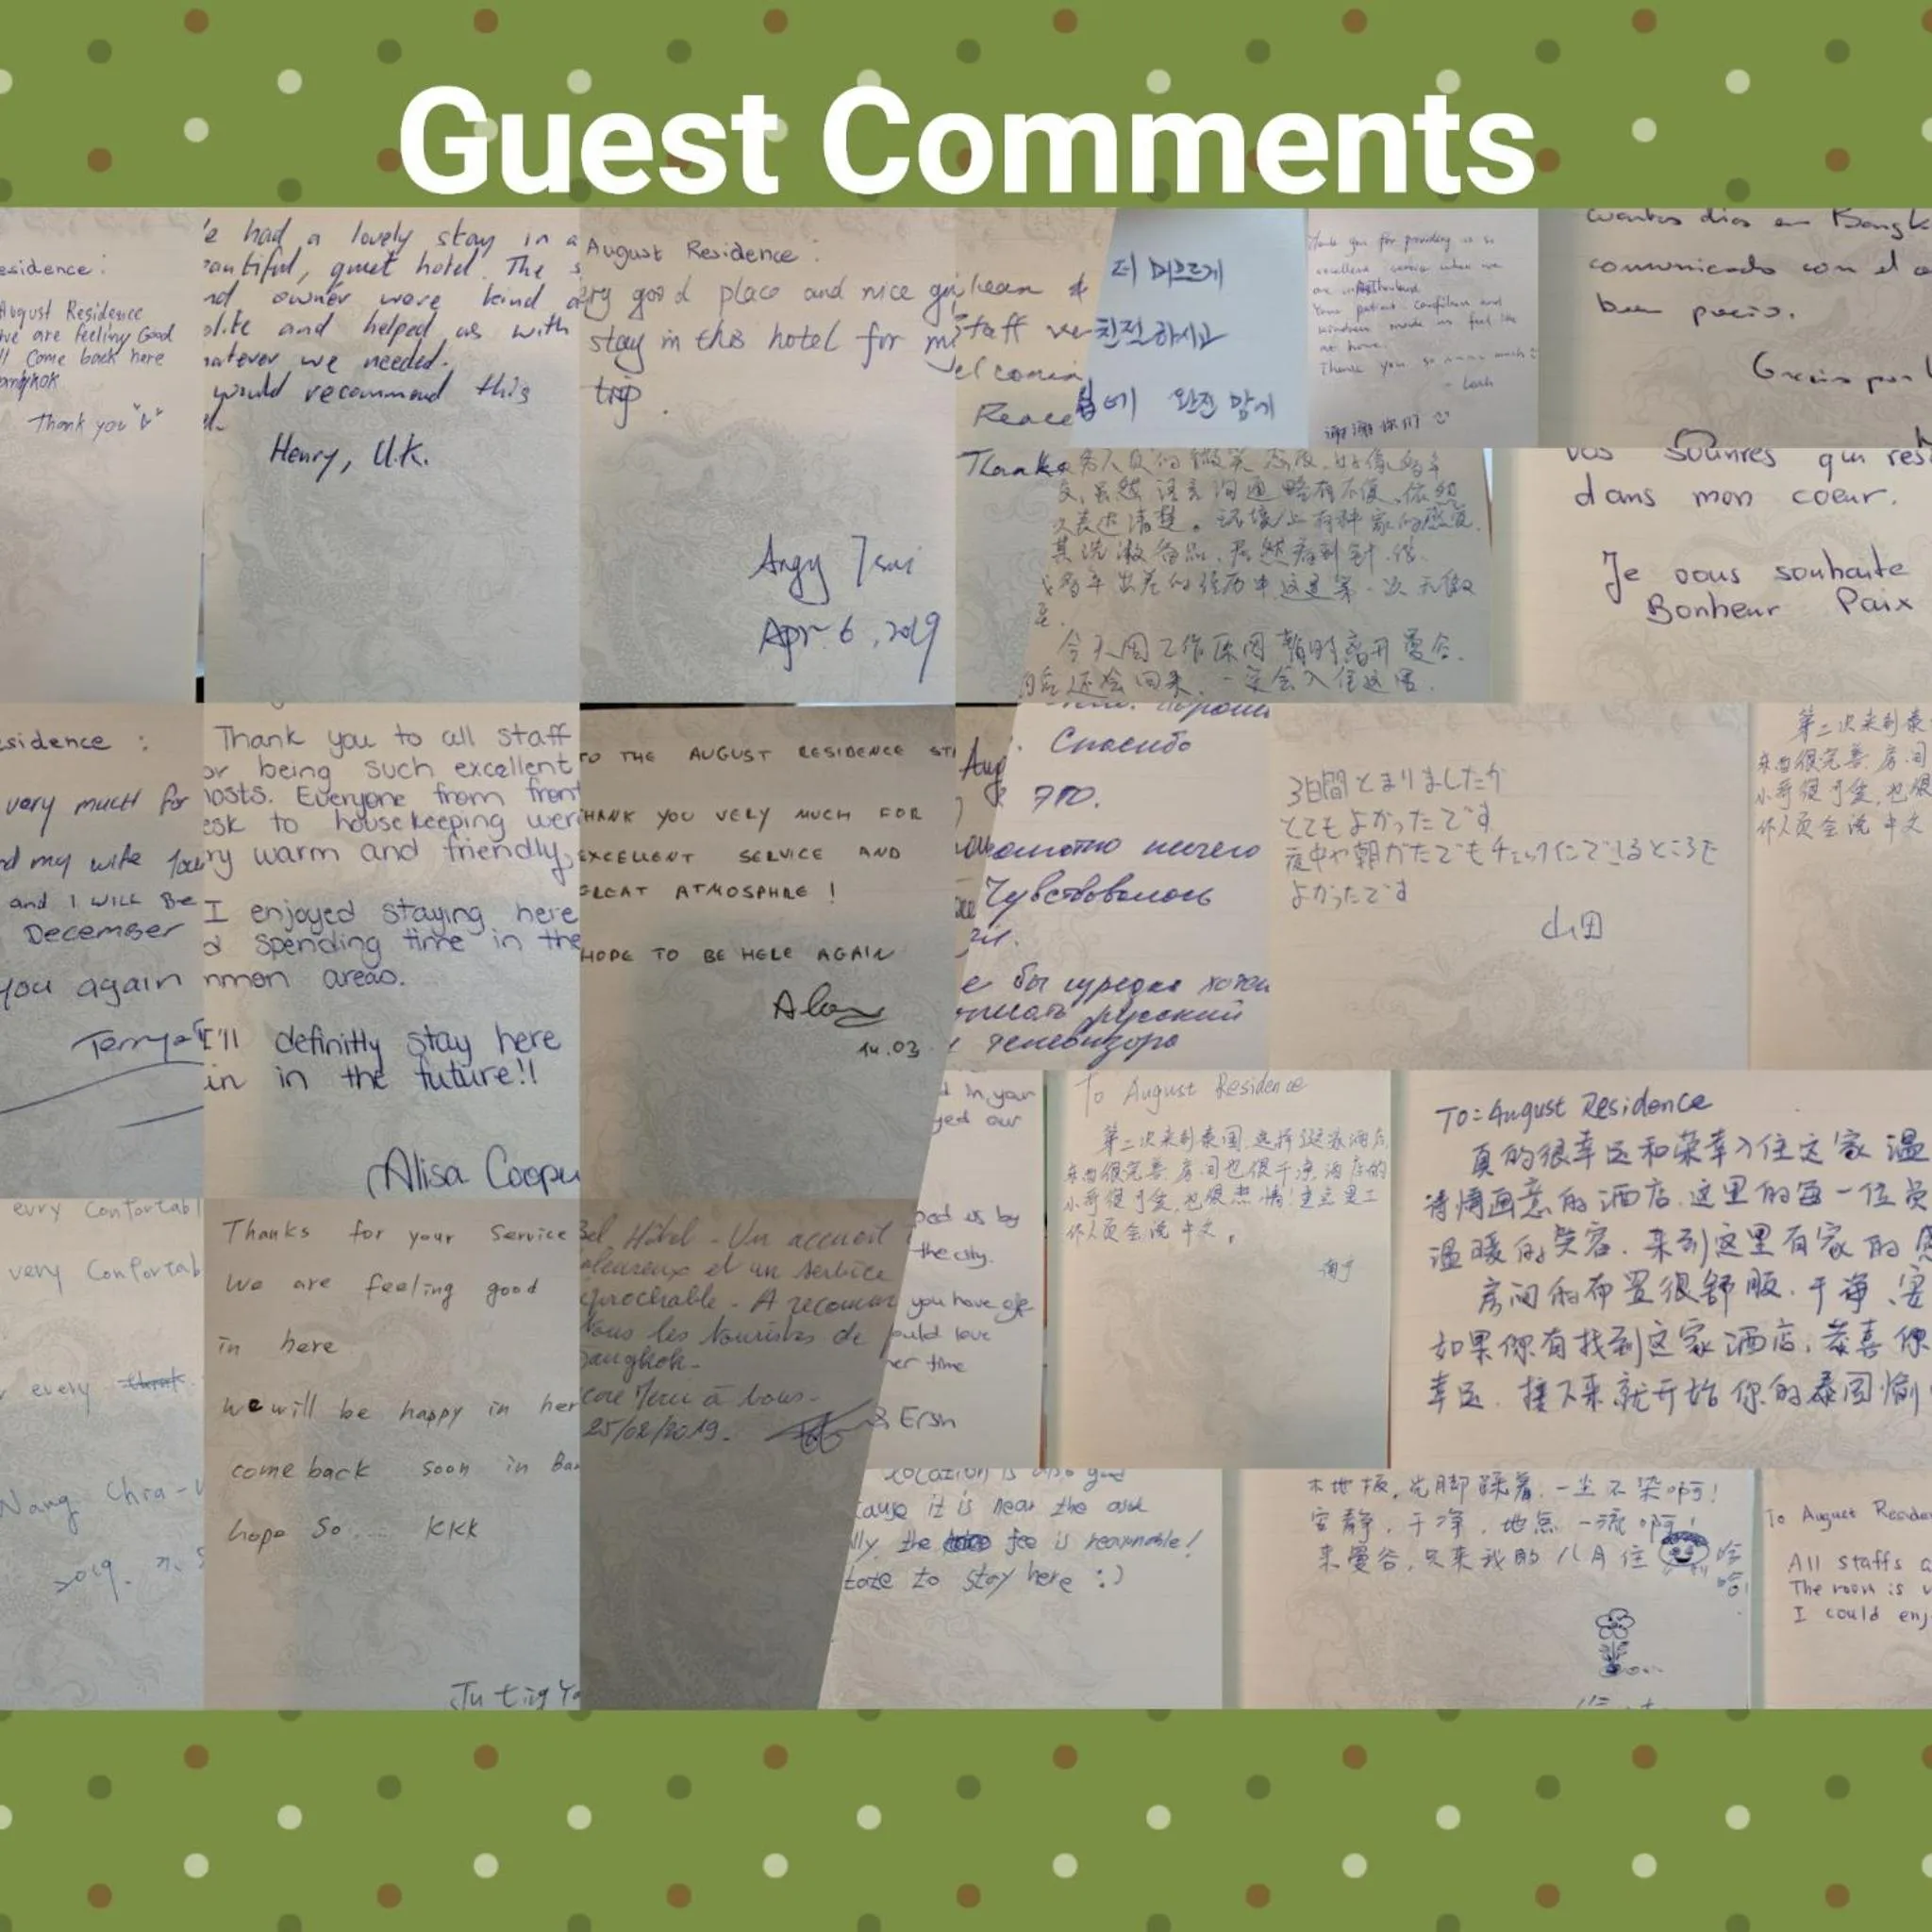 Guest Comments
esidence:
August Residence
we are feeling Good
ll come back here
angkok
Thank you
e had a lovely stay in a
eautiful, quiet hotel. The s
nd owner were kind a
olite and helped us with
hatever we needed.
would recommend this
el.
Henry, U.K.
August Residence:
ery good place and nice
stay in this hotel for
trip.
Angy Tsai
Apr. 6, 2019
clean &
staff
Peace
Thanks
더 머므르게
친절하시고
에 완전 맘게
Thank you for providing us so
excellent service when we
are in
Your patient, confident and
kindness made us feel like
at home.
Thank you so much
- Leah
谢谢你们
cuantos dias en Bangk
comunicado con el
buen precio.
Gracias por
务人员的微笑态度,好像多年
友,虽然语言沟通略有不便,依然
表达清楚。环境上有种家的感觉.
其洗漱备品,居然看到针.线.
多年出差的经历中这是第一次
今天因工作原因暂时离开曼谷.
还会回来,一定会入住这里.
vos sourires qui rest
dans mon coeur.
Je vous souhaite
Bonheur Paix
esidence :
very much for
nd my wife
and I will Be
December
you again
Terry
Thank you to all staff
or being such excellent
hosts. Everyone from front
esk to housekeeping were
ry warm and friendly,
I enjoyed staying here
d spending time in the
mmon areas.
I'll definitly stay here
in in the future!!
Alisa Coope
TO THE AUGUST RESIDENCE STA
THANK YOU VERY MUCH FOR
EXCELLENT SERVICE AND
GREAT ATMOSPHRE !
HOPE TO BE HERE AGAIN
14.03
Aug
Спасибо
это.
ничего
Чувствовалось
бы изредка хотел
русский
телевизора
3日間とまりましたが
とてもよかったです
夜中や朝がたでもチェックインできるところも
よかったです
山田
第二次来到泰
东西很完善.房间
小哥很可爱,也很
作人员会说中文
d in your
yed our
ped us by
the city.
you have
ould love
er time
& Ersn
To August Residence
第二次来到泰国,选择了这家酒店,
东西很完善.房间也很干净,酒店的
小哥很可爱,也很热情!重点是工
作人员会说中文。
To: August Residence
真的很幸运和荣幸入住这家温
诗情画意的酒店.这里的每一位员
温暖的笑容.来到这里有家的感
房间的布置很舒服.干净、安
如果你有找到这家酒店,恭喜你
幸运.接下来就开始你的泰国愉
evry Confortabl
very Confortab
every
Nang
2019.
Thanks for your Service
we are feeling good
in here
we will be happy in her
come back soon in Ba
hope So.... KKK
Ju ting Ya
Bel Hôtel - Un accueil
aleureux et un service
éprochable - A recomman
tous les touristes de
Bangkok -
core Merci à vous -
25/02/2019 -
location is also good
cause it is near the
lly, the fee is reasonable!
to stay here :)
木地板,光脚踩着,一尘不染啊!
安静,干净,地点一流啊!
来曼谷,只来我的八月住
哈哈
To August Reside
All staffs a
The room is v
I could enj